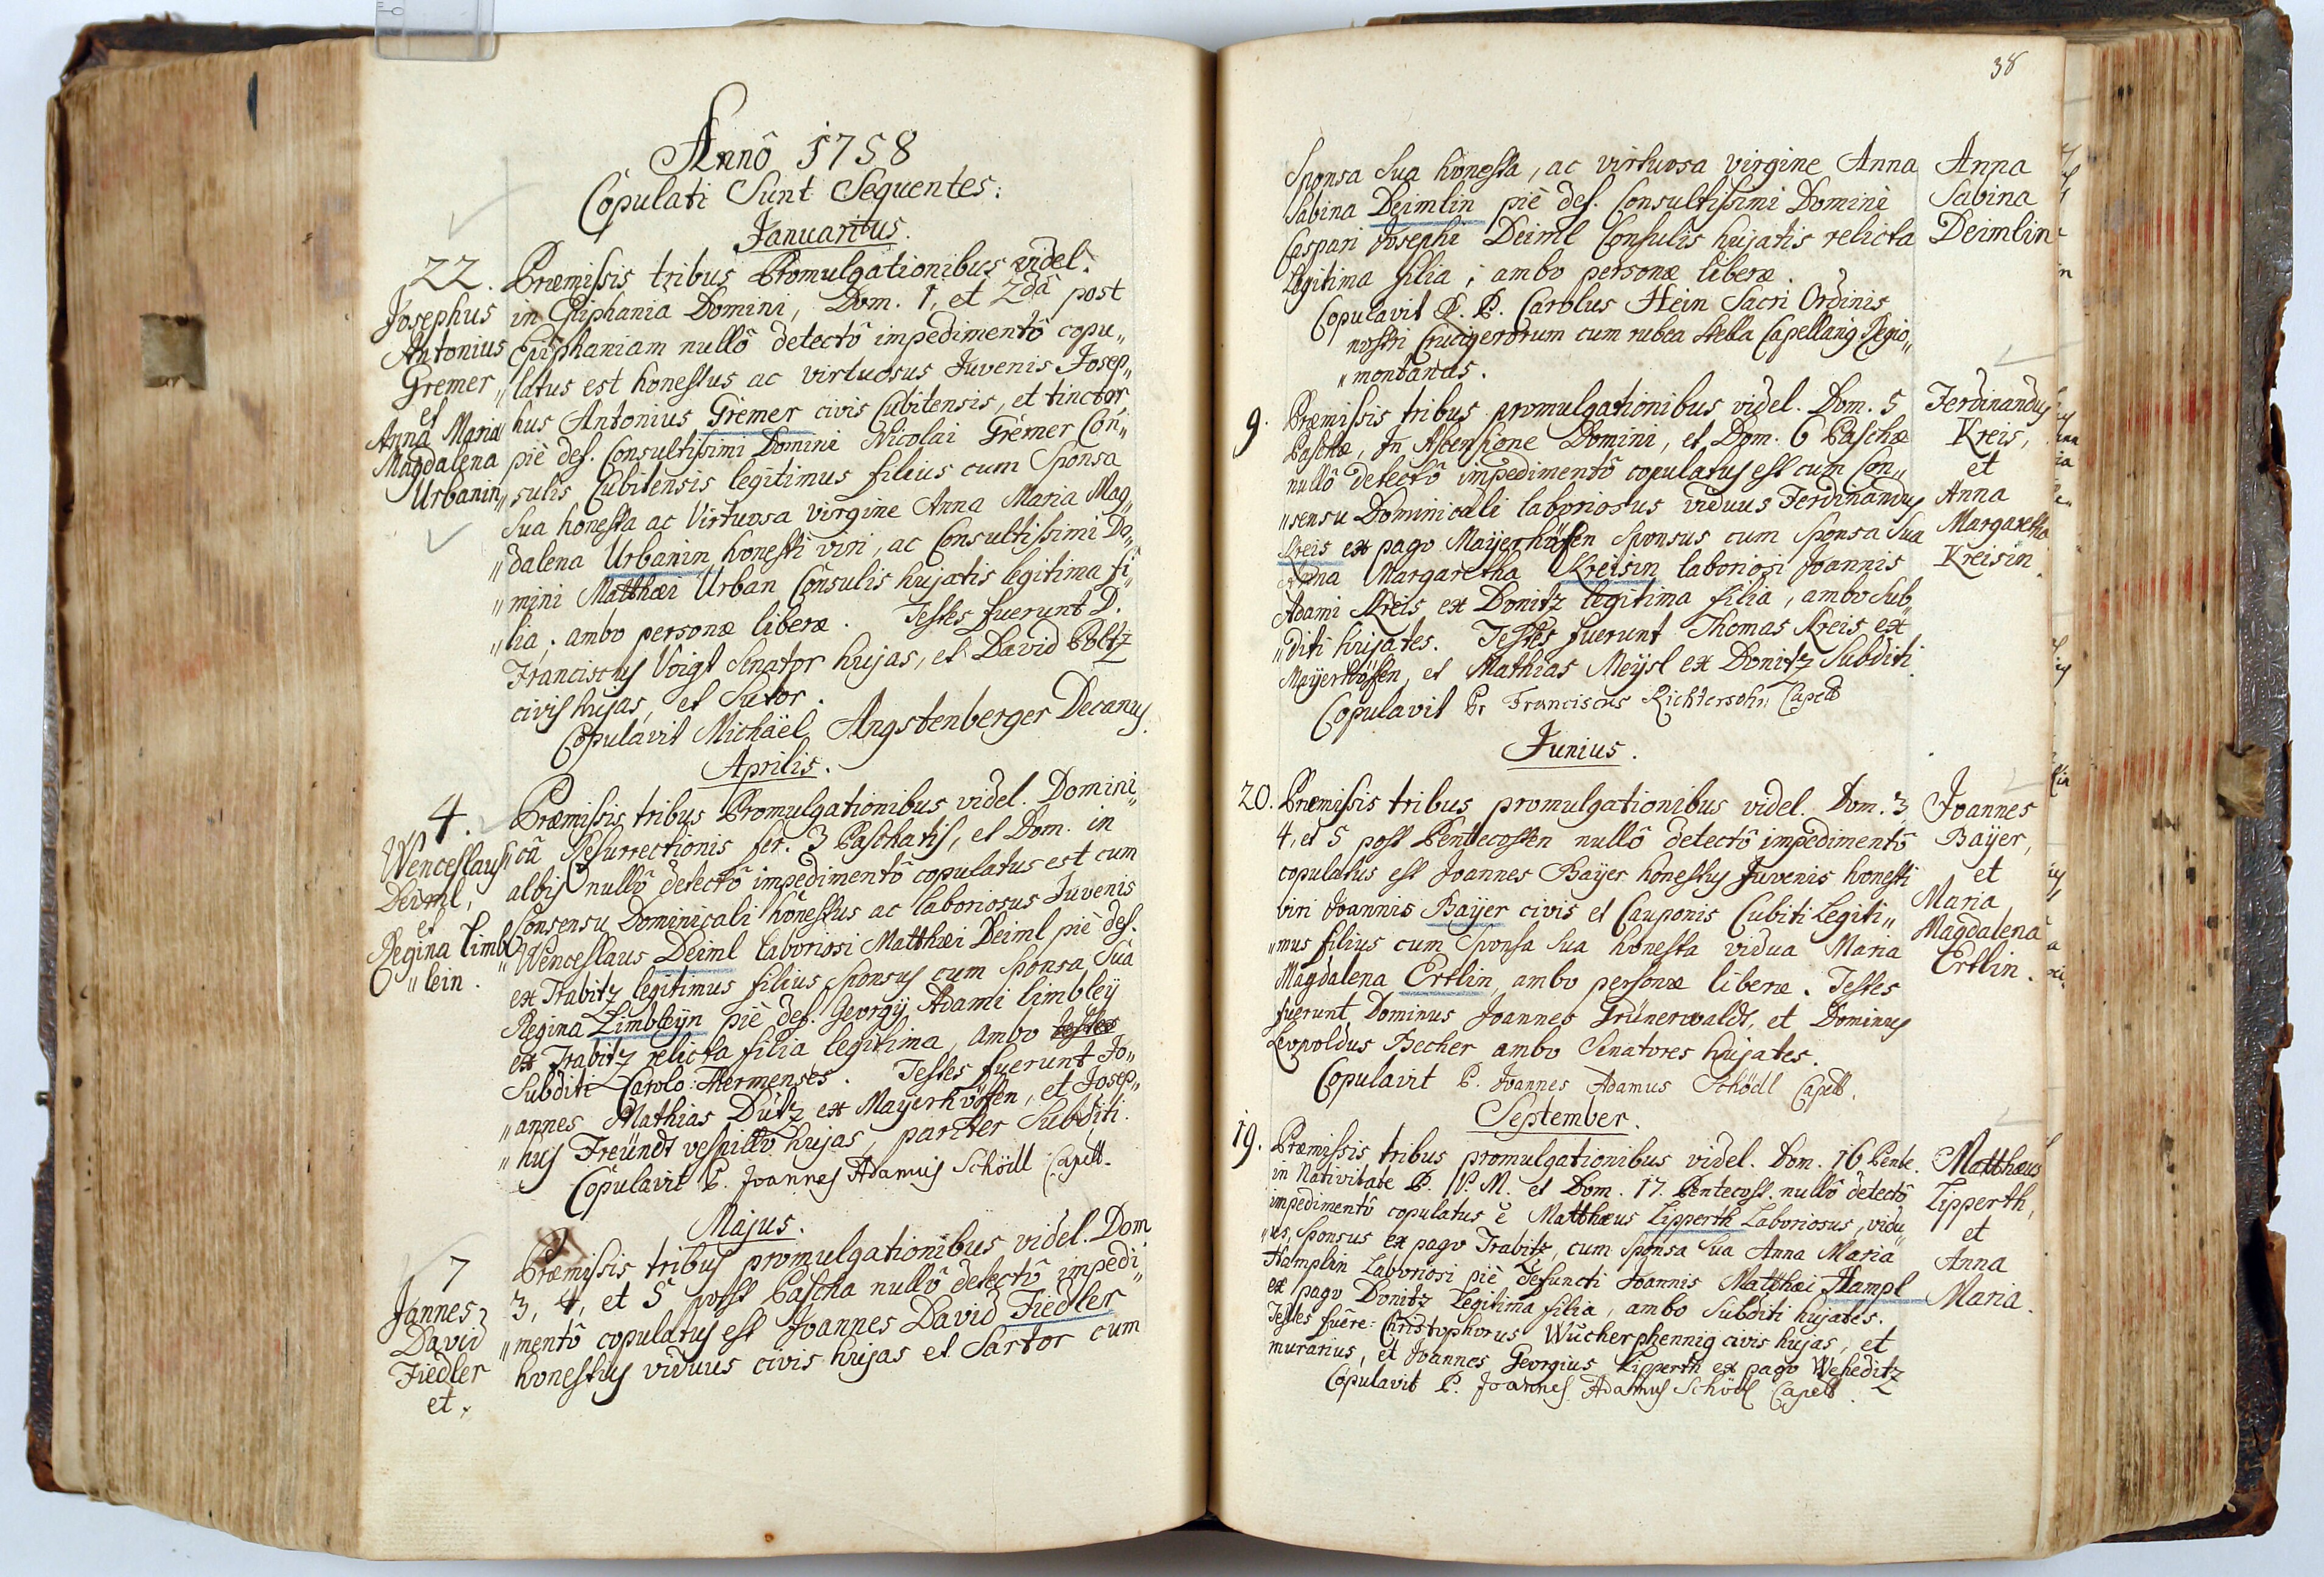 Annô 1758
Copulati Sunt Sequentes:
Januarius.
22.
Josephus
Antonius
Gremer
et
Anna Maria
Magdalena
Urbanin
Præmissis tribus Promulgationibus videl.
in Epiphania Domini, Dom. 1, et 2dâ post
Epiphaniam nullô detectô impedimentô copu„
„latus est honestus ac virtuosus Juvenis Josep„
hus Antonius Gremer civis Cubitensis, et tinctor,
piè def. Consultissimi Domini Nicolai Gremer Con„
„sulis Cubitensis legitimus filius cum Sponsa
Sua honesta ac Virtuosa virgine Anna Maria Mag„
„dalena Urbanin, honesti viri, ac Consultissimi Do„
„mini Matthæi Urban Consulis hujatis legitima fi„
„lia; ambo personæ liberæ. Testes fuerunt D.
Franciscus Voigt Senator hujas, et David Poltz
civis hujas, et Sutor.
Copulavit Michäel Angstenberger Decanus.
Aprilis.
4.
Wenceslaus
Deiml,
et
Regina Limb
„lein.
Præmissis tribus Promulgationibus videl. Domini„
„câ Resurrectionis fer. 3 Paschatis, et Dom. in
albis nullô detectô impedimentô copulatus est cum
Consensu Dominicali honestus ac laboriosus Juvenis
Wenceslaus Deiml laboriosi Matthæi Deiml piè def.
ex Trabitz legitimus filius Sponsus cum Sponsa Sua
Regina Limbleijn piè def. Georgij Adami Limbleij
ex Trabitz relicta filia legitima, ambo testes
Subditi Carolo: Thermenses. Testes fuerunt Jo„
„annes Mathias Dütz ex Mayerhöffen, et Josep„
„hus Freündt vespillo hujas, pariter Subditi.
Copulavit P. Joannes Adamus Schödl Capell.
Majus.
7
Jannes
David
Fiedler
et.
Præmissis tribus promulgationibus videl. Dom.
3, 4, et 5 post Pascha nullô detectô impedi„
„mentô copulatus est Joannes David Fiedler
honestus viduus civis hujas et Sartor cum
38
Sponsa Sua honesta, ac virtuosa virgine Anna
Sabina Deimlin piè def. Consultissimi Domini
Caspari Josephi Deiml Consulis hujatis relicta
Legitima filia; ambo personæ liberæ.
Copulavit R. P. Carolus Hein Sacri Ordinis
nostri Crucigerorum cum rubea Stella Capellanus Regio„
„montanus.
Anna
Sabina
Deimlin
9.
Præmissis tribus promulgationibus videl. Dom. 5
Paschæ, In Ascensione Domini, et Dom. 6 Paschæ
nullô detectô impedimentô copulatus est cum Con„
„sensu Dominicali laboriosus viduus Ferdinandus
Kreis ex pago Mayerhöfen Sponsus cum Sponsa Sua
Anna Margaretha Kreisin laboriosi Joannis
Adami Kreis ex Donitz legitima filia, ambo Sub„
„diti hujates. Testes fuerunt Thomas Kreis ex
Mayerhöffen, et Mathias Meysl ex Donitz Subditi.
Copulavit Pr Franciscus Richtersohn Capell
Ferdinandus
Kreis,
et
Anna
Margaretha
Kreisin.
Junius.
20.
Præmissis tribus promulgationibus videl. Dom. 3,
4, et 5 post Pentecosten nullô detectô impedimentô
copulatus est Joannes Baÿer honestus Juvenis honesti
viri Joannis Baÿer civis et Cauponis Cubiti Legiti„
„mus filius cum Sponsa Sua honesta vidua Maria
Magdalena Ertlin, ambo personæ liberæ. Testes
fuerunt Dominus Joannes Grünerwaldt, et Dominus
Leopoldus Becher ambo Senatores hujates.
Copulavit P. Joannes Adamus Schödl Capell.
Joannes
Baÿer,
et
Maria
Magdalena
Ertlin.
September.
19.
Præmissis tribus promulgationibus videl. Dom. 16 Pente.
in Nativitate B. V. M. et Dom. 17. Pentecost. nullô detectô
impedimentô copulatus ẽ Matthæus Lipperth Laboriosus, vidu„
„us, Sponsus ex pago Trabitz, cum Sponsa Sua Anna Maria
Hamplin Laboriosi piè defuncti Joannis Matthæi Hampl
ex pago Donitz Legitima filia, ambo Subditi hujates.
Testes fuêre: Christophorus Wucherphennig civis hujas, et
murarius, et Joannes Georgius Lipperth ex pago Weheditz
Copulavit P. Joannes Adamus Schödl Capell.
Matthæus
Lipperth,
et
Anna
Maria.